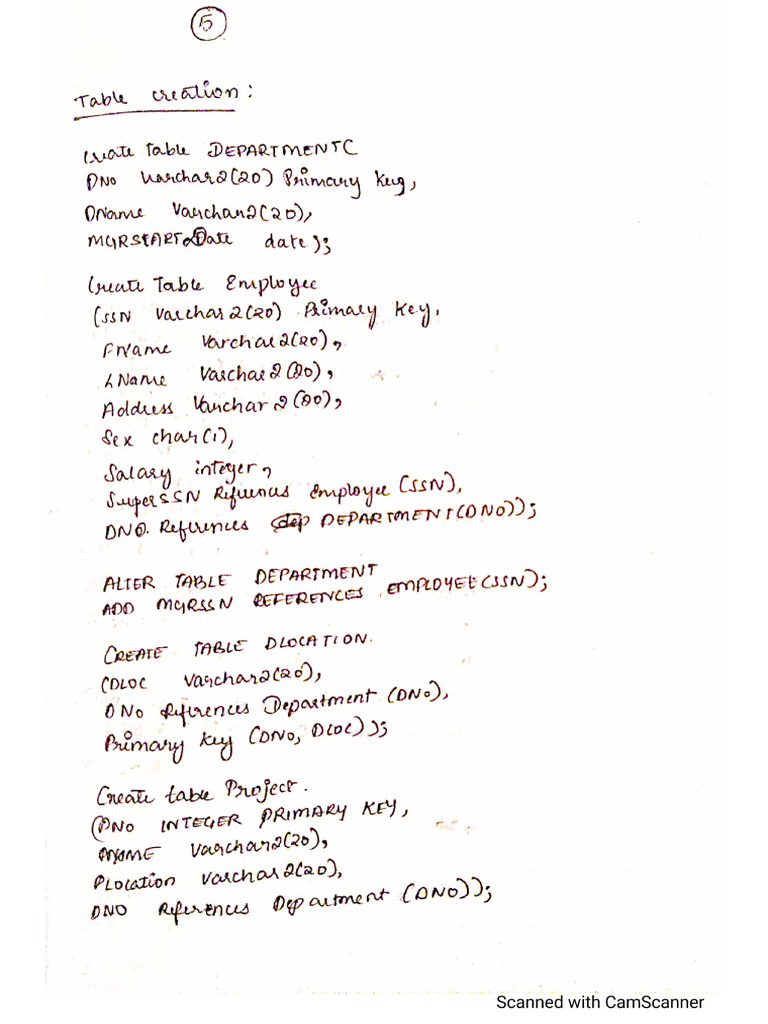 5
Table creation:
Create table DEPARTMENT(
DNo Varchar2(20) Primary Key,
DName Varchar2(20),
MGRSTARTDate date);
Create Table Employee
(SSN Varchar2(20) Primary Key,
FName Varchar2(20),
LName Varchar2(20),
Address Varchar2(20),
Sex char(1),
Salary integer,
SuperSSN References Employee (SSN),
DNO References DEPARTMENT(DNO));
ALTER TABLE DEPARTMENT
ADD MGRSSN REFERENCES EMPLOYEE(SSN);
CREATE TABLE DLOCATION.
(DLOC Varchar2(20),
DNo References Department (DNo),
Primary Key (DNo, DLOC));
Create table Project.
(PNo INTEGER PRIMARY KEY,
PNAME Varchar2(20),
PLocation Varchar2(20),
DNO References Department (DNO));
Scanned with CamScanner